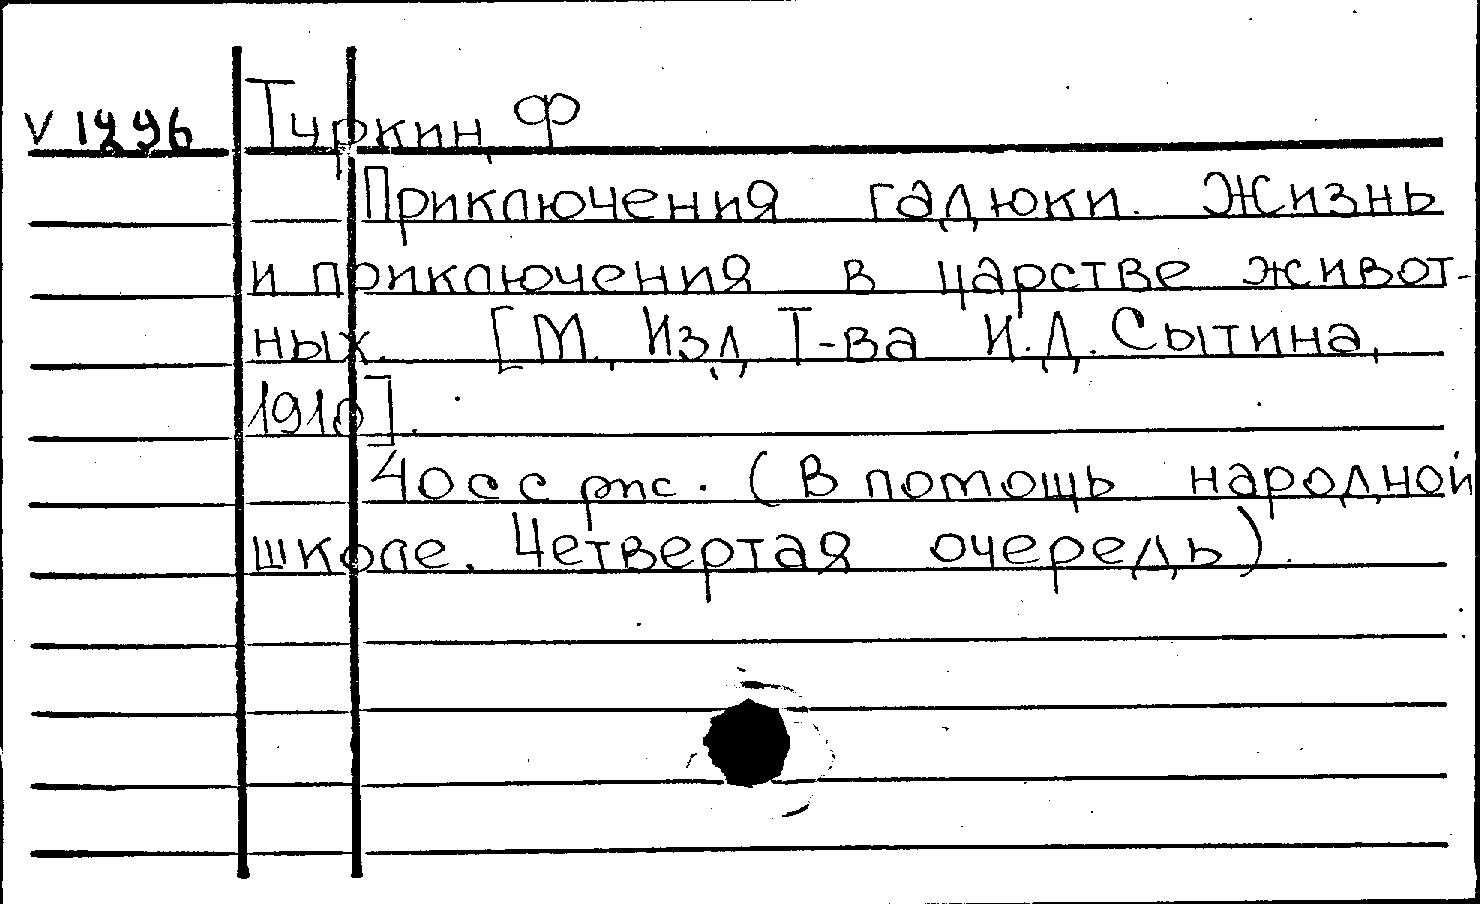 V 1296 Туркин, Ф
Приключения гадюки. Жизнь
и приключения в царстве живот-
ных. [М., Изд. Т-ва И.Д. Сытина,
1910].
40с с рис. (В помощь народной
школе. Четвертая очередь).